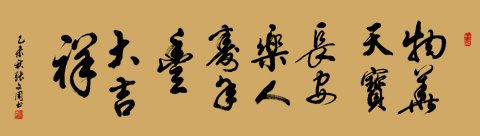 物華
天寶
長安
樂人
壽年
豐
大吉
祥
乙未秋張文